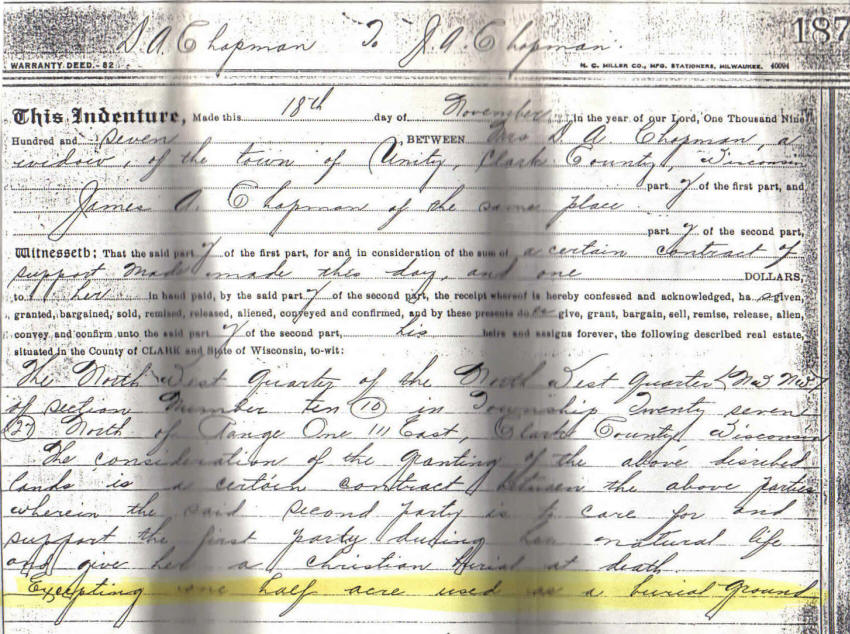 187
D. A. Chapman To J. A. Chapman.
WARRANTY DEED.-82 N. C. MILLER CO., MFG. STATIONERS, MILWAUKEE. 40094
This Indenture, Made this 18th day of November, in the year of our Lord, One Thousand Nine
Hundred and seven BETWEEN Mrs D. A. Chapman, a
widow, of the town of Unity, Clark County, Wisconsin
part y of the first part, and
James A. Chapman of the same place
part y of the second part,
Witnesseth: That the said part y of the first part, for and in consideration of the sum of a certain contract of
support made made this day, and one DOLLARS,
to her in hand paid, by the said part y of the second part, the receipt whereof is hereby confessed and acknowledged, ha s given,
granted, bargained, sold, remised, released, aliened, conveyed and confirmed, and by these presents do es give, grant, bargain, sell, remise, release, alien,
convey and confirm unto the said part y of the second part, his heirs and assigns forever, the following described real estate,
situated in the County of CLARK and State of Wisconsin, to-wit:
The North West quarter of the North West quarter (NW NW)
of section Number ten (10) in Township Twenty seven
(27) North of Range One (1) East, Clark County Wisconsin
The consideration of the granting of the above discribed
lands is a certain contract between the above parties
wherein the said second party is to care for and
support the first party during her natural life
and give her a Christian burial at death
Excepting one half acre used as a burial ground